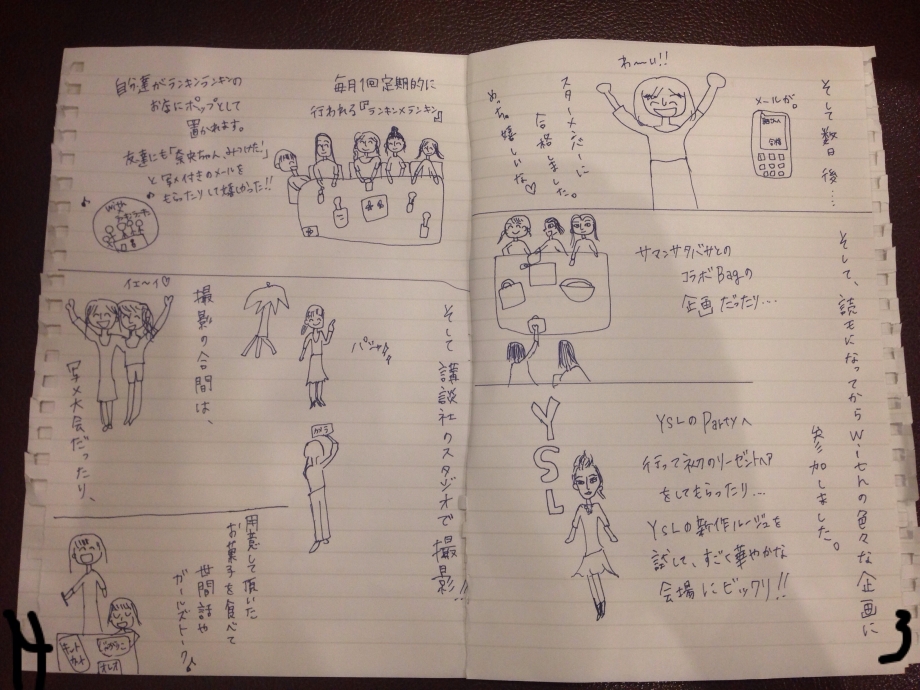 そして数日後....
メールが。
合格
わ〜い!!
スターメンバーに
合格しました。
めっちゃ嬉しいな♡
そして、読モになってからwithの色々な企画に
参加しました。
サマンサタバサとの
コラボBagの
企画だったり...
YSL
YSLのPartyへ
行って初のリーゼントヘア
をしてもらったり...
YSLの新作ルージュを
試して、すごく華やかな
会場にビックリ!!
3
毎月1回定期的に
行われる『ランキンメランキン』
自分達がランキンランキンの
お店にポップとして
置かれます。
友達にも「奈央ちゃん、みつけた!」
と写メ付きのメールを
もらったりして嬉しかった!!
with
そして講談社のスタジオで撮影!!
パシャパシャ
カメラ
撮影の合間は、
イエ〜イ♡
写メ大会だったり、
用意して頂いた
お菓子を食べて
世間話や
ガールズトーク♪
キットカット
じゃがりこ
オレオ
4